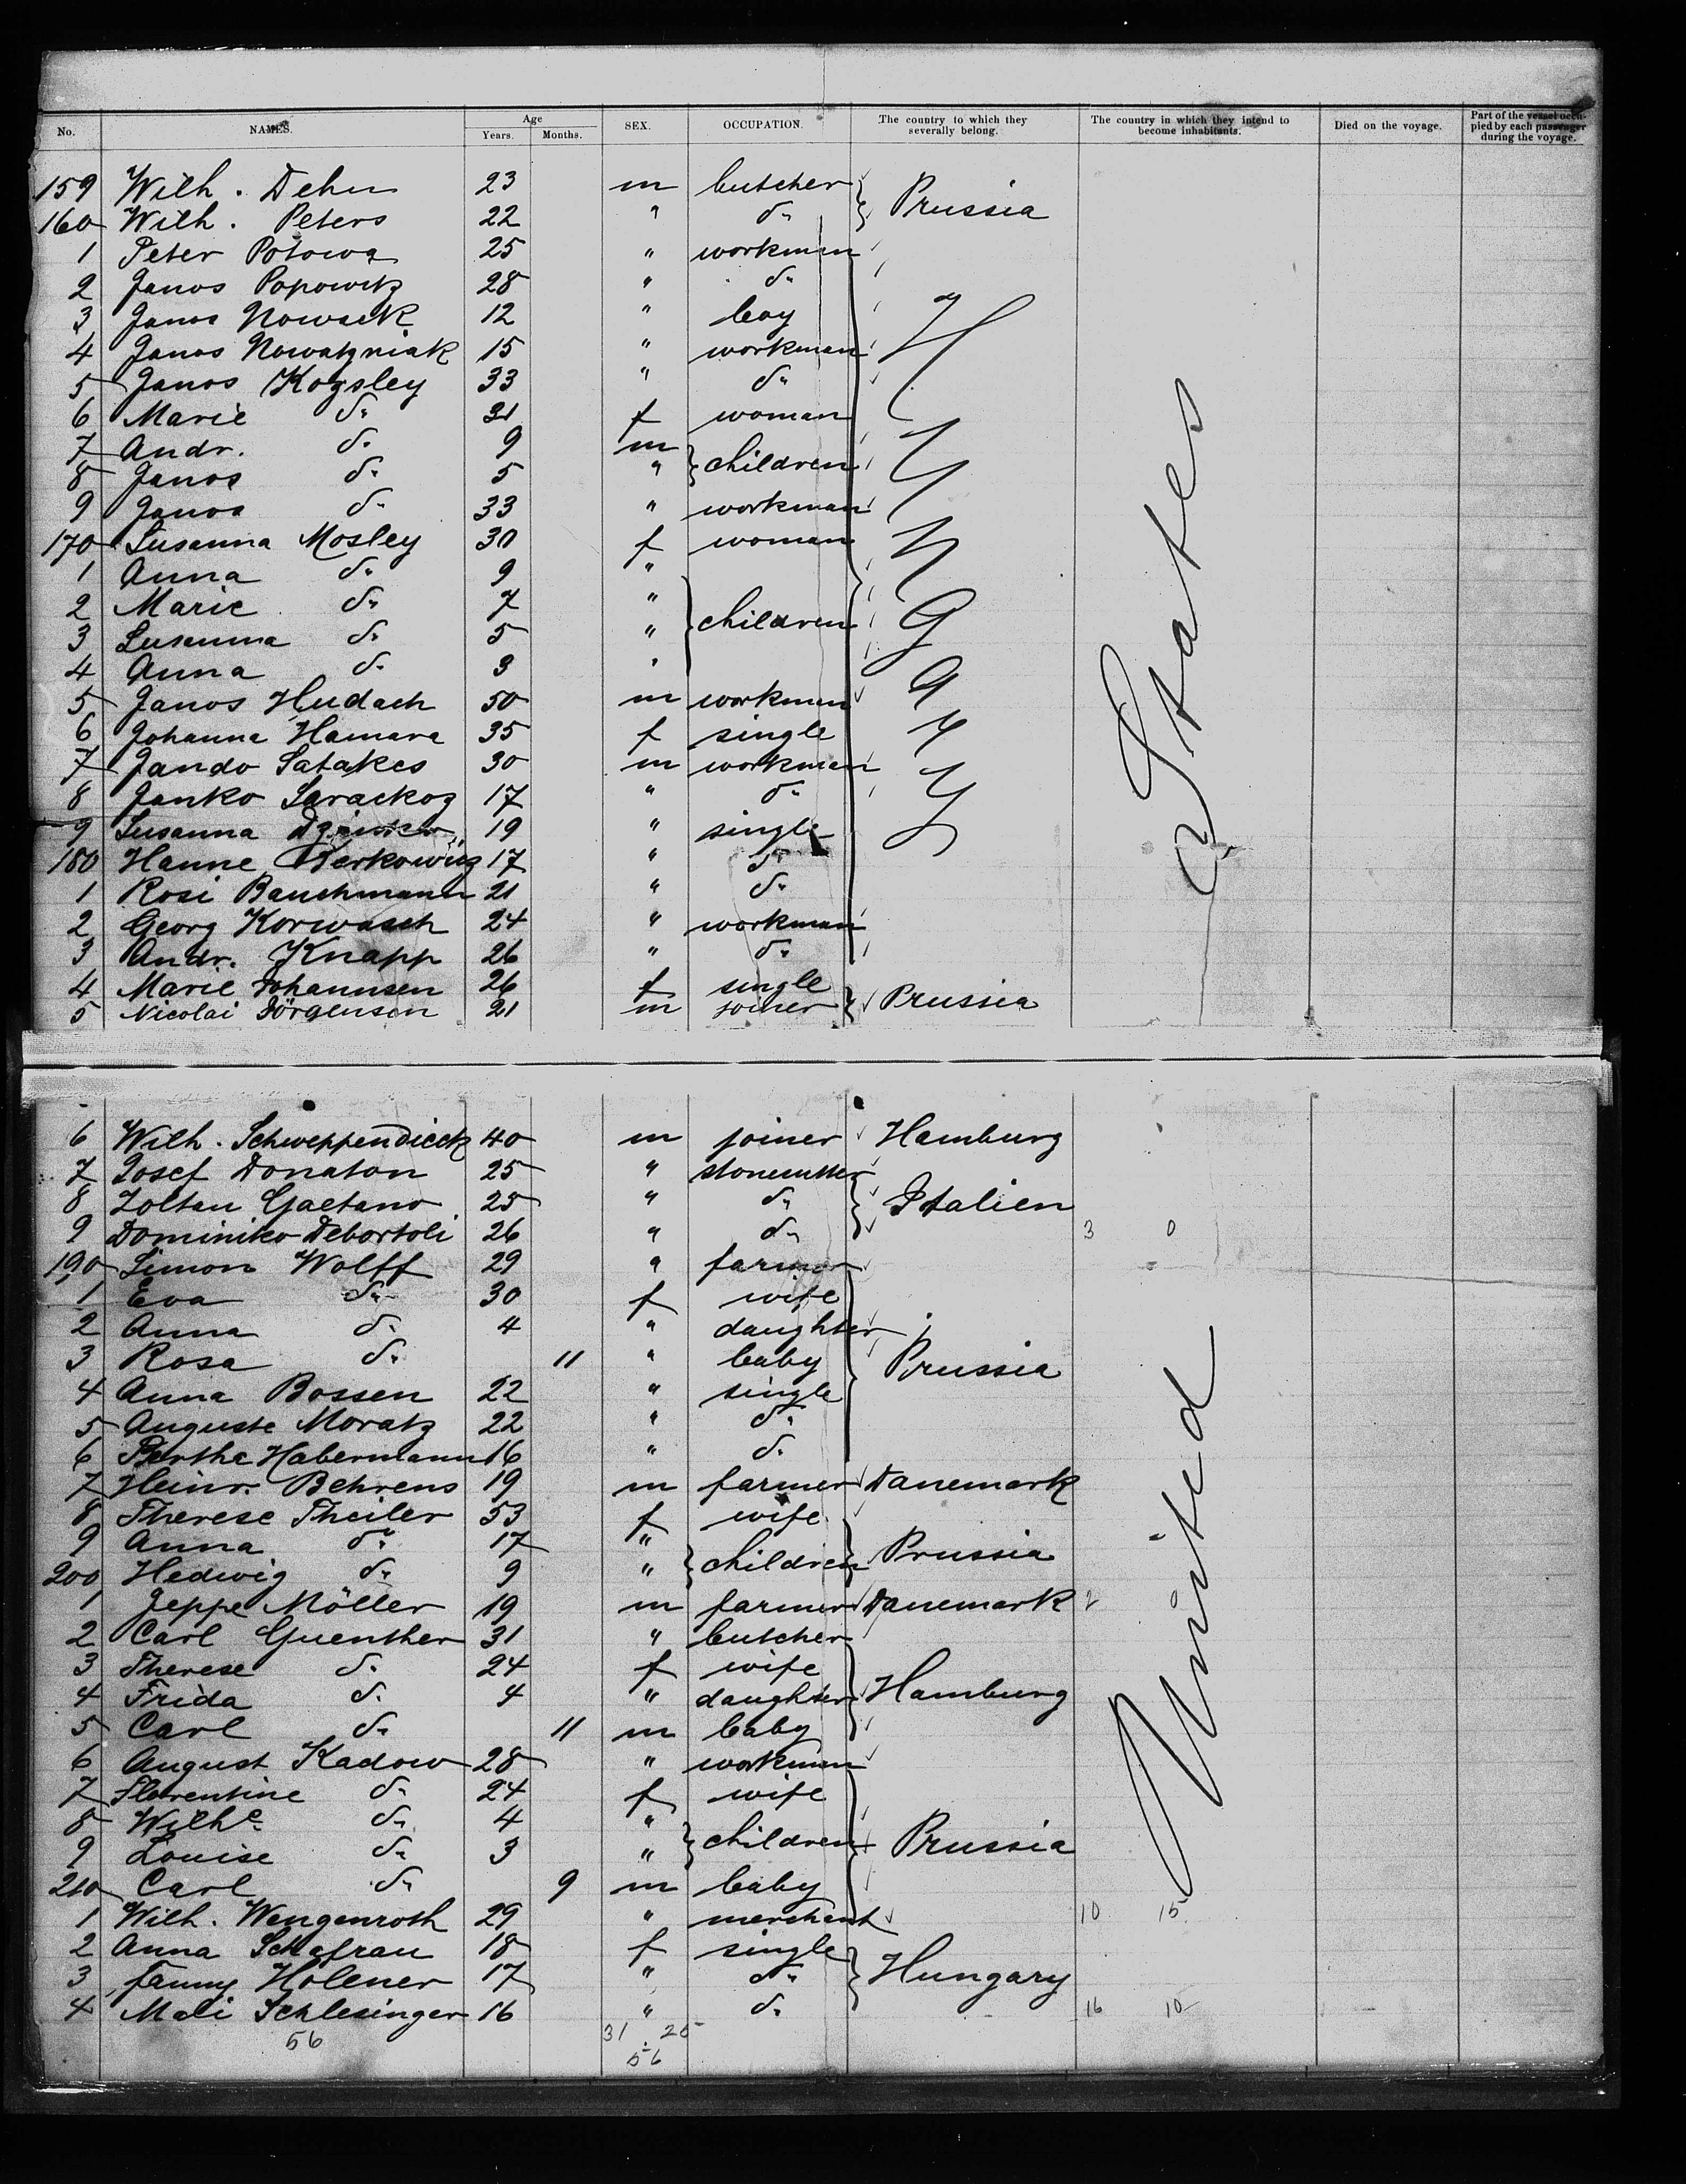 No. NAMES. Age Years. Months. SEX. OCCUPATION. The country to which they severally belong. The country in which they intend to become inhabitants. Died on the voyage. Part of the vessel occupied by each passenger during the voyage.
159 Wilh. Dehn 23 m butcher Prussia
160 Wilh. Peters 22 " do
1 Peter Potowa 25 " workman
2 Janos Popowitz 28 " do
3 Janos Nowsek 12 " boy
4 Janos Nowatzniak 15 " workman
5 Janos Kogsley 33 " do
6 Marie do 31 f woman
7 Andr. do 9 m children
8 Janos do 5 "
9 Janos do 33 " workman
170 Susanna Mosley 30 f woman
1 Anna do 9 " children
2 Marie do 7 "
3 Susanna do 5 "
4 Anna do 3 "
5 Janos Hudach 50 m workman
6 Johanna Hamara 35 f single
7 Jando Satakes 30 m workman
8 Janko Sarackoz 17 " do
9 Susanna 19 " single
180 Hanne Berkowitz 17 " do
1 Rosi Bauchmann 21 " do
2 Georg Korwasch 24 " workman
3 Andr. Knapp 26 " do
Hungary
4 Marie Johannsen 26 f single Prussia
5 Nicolai Jörgensen 21 m joiner
6 Wilh. Schweppendieck 40 m joiner Hamburg
7 Josef Donaton 25 " stonecutter Italien
8 Zoltan Gaetano 25 " do
9 Dominiko Debortoli 26 " do 3 0
190 Simon Wolff 29 " farmer
1 Eva do 30 f wife
2 Anna do 4 " daughter
3 Rosa do 11 " baby Prussia
4 Anna Bossen 22 " single
5 Auguste Moratz 22 " do
6 Berthe Habermann 16 " do
7 Heinr. Behrens 19 m farmer Danemark
8 Therese Theiler 53 f wife
9 Anna do 17 " children Prussia
200 Hedwig do 9 "
1 Jeppe Möller 19 m farmer Danemark 2 0
2 Carl Guenther 31 " butcher
3 Therese do 24 f wife
4 Frida do 4 " daughter Hamburg
5 Carl do 11 m baby
6 August Kadow 28 " workman
7 Florentine do 24 f wife
8 Wilhe. do 4 " children Prussia
9 Louise do 3 "
210 Carl do 9 m baby
1 Wilh. Wengenroth 29 " merchant 10 15
2 Anna Schafrau 18 f single
3 Fanny Holener 17 " do Hungary
4 Mali Schlesinger 16 " do 16 10
United States
56 31 25
56